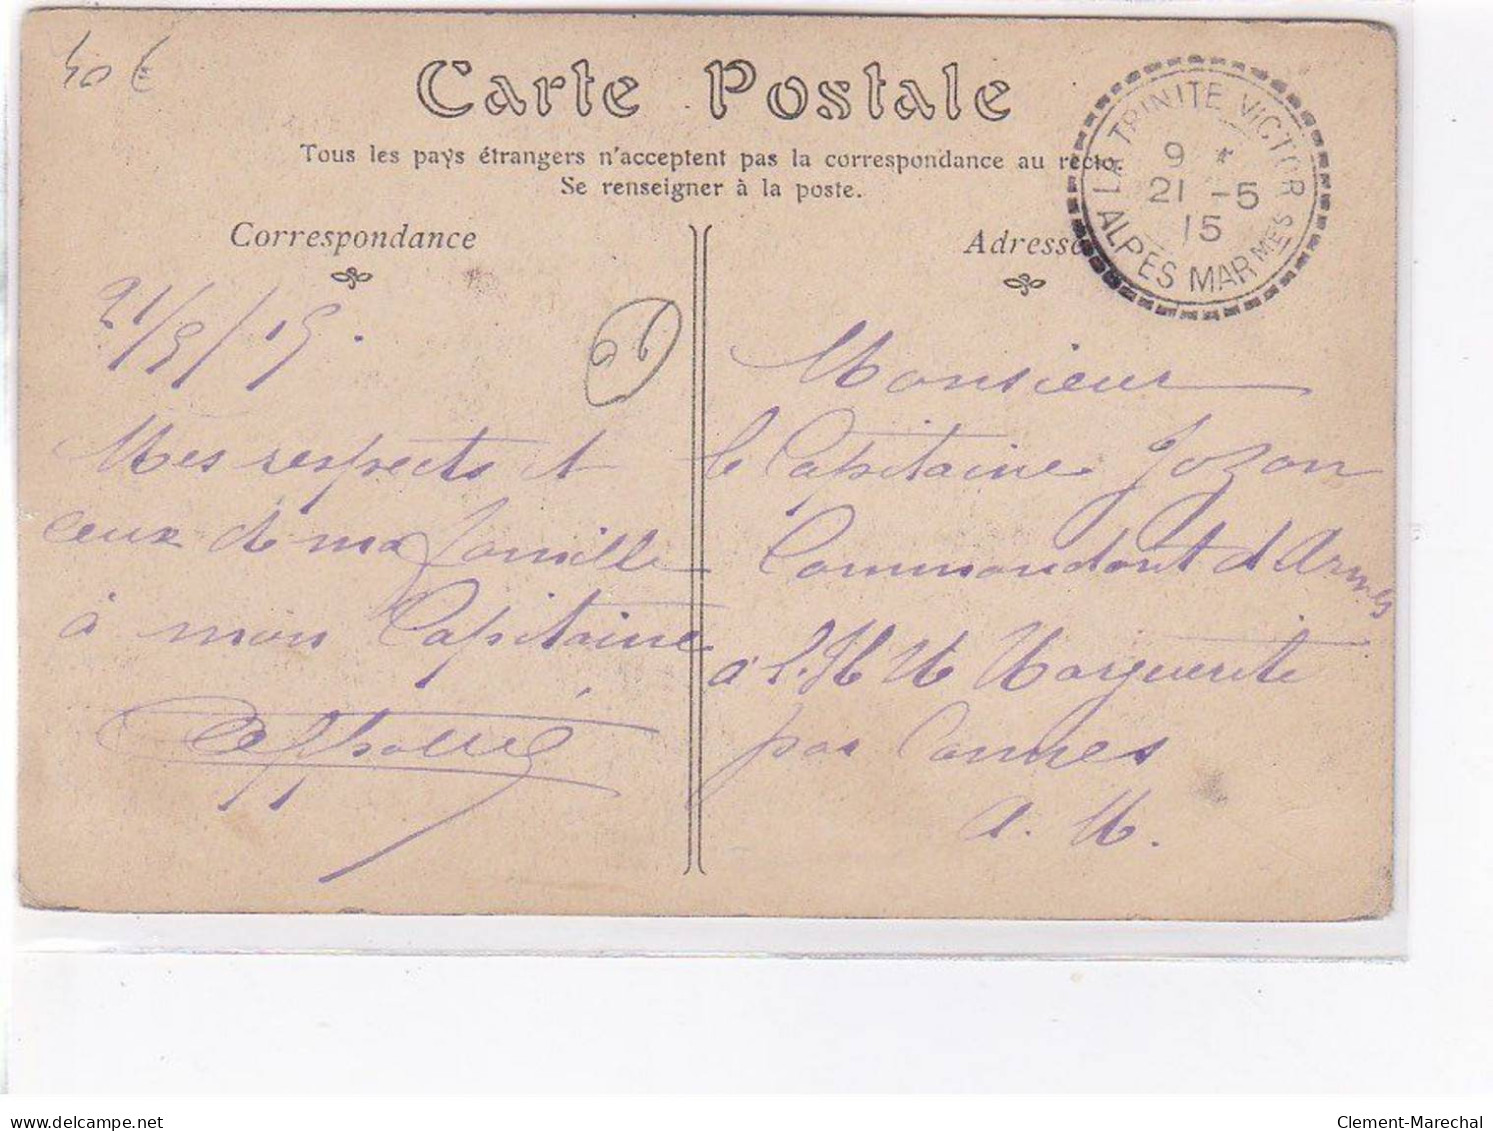 40 €
Carte Postale
Tous les pays étrangers n'acceptent pas la correspondance au recto.
Se renseigner à la poste.
LA TRINITE VICTOR
9
21 -5
15
ALPES MARMES
Correspondance
Adresse
21/5/15.
06
Mes respects et
ceux de ma famille
à mon Capitaine
Monsieur
le Capitaine Jozon
Commandant d'Armes
à l'
Marguerite
par Cannes
A. M.
delcampe.net
Clement-Marechal